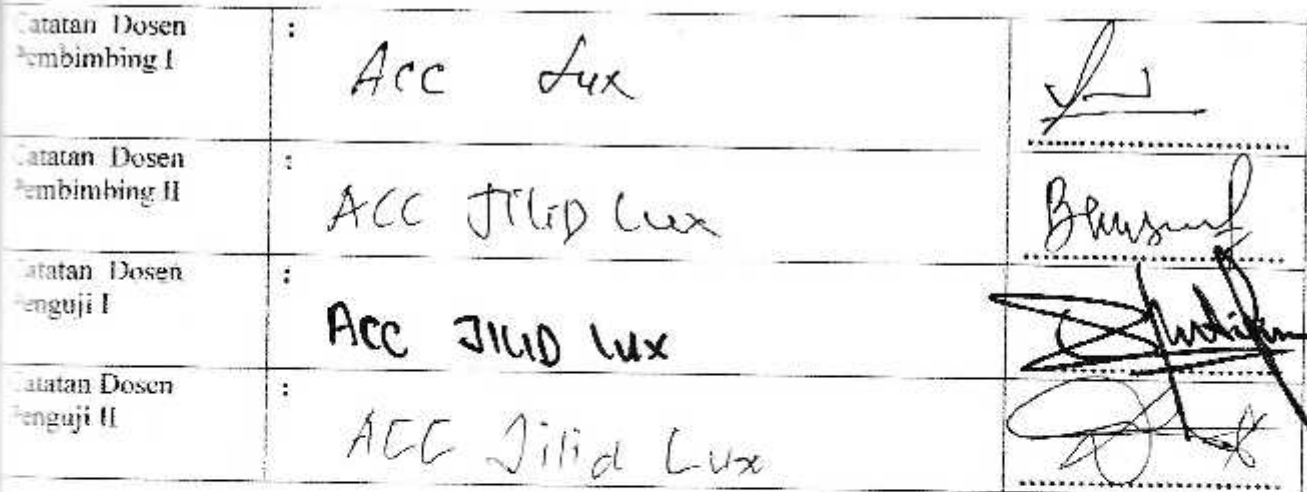 Catatan Dosen : 
Pembimbing I
Acc Lux
Catatan Dosen :
Pembimbing II
ACC JILID Lux
Catatan Dosen :
Penguji I
Acc JILID lux
Catatan Dosen :
Penguji II
ACC Jilid Lux